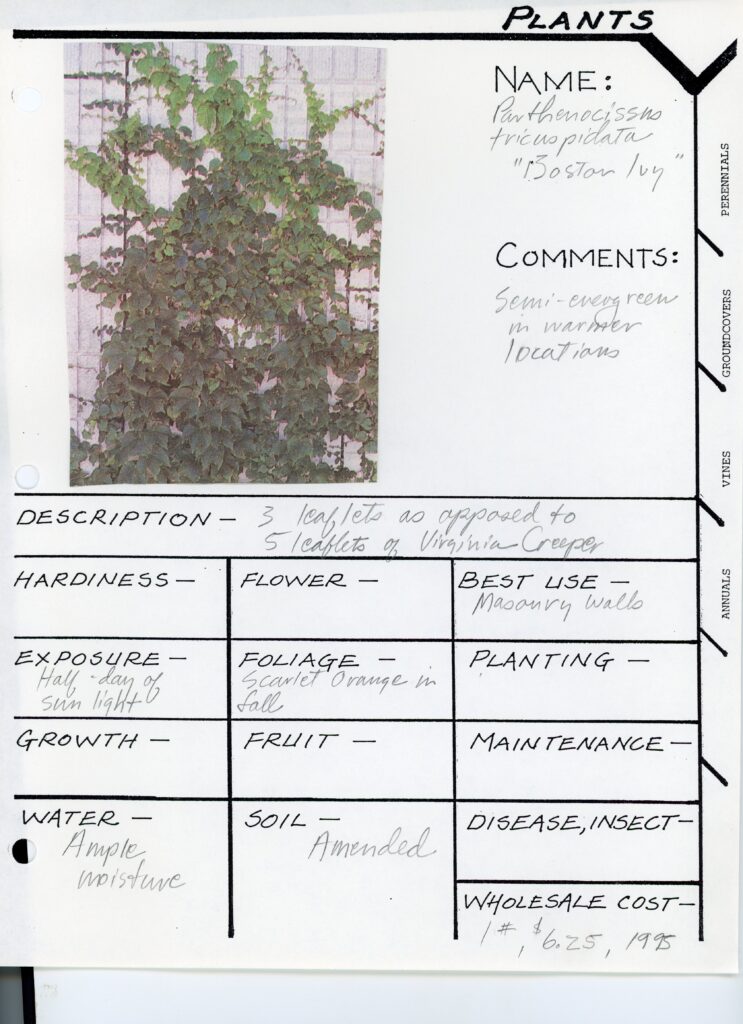 PLANTS
NAME:
Parthenocissus
tricuspidata
"Boston Ivy"
COMMENTS:
Semi-evergreen
in warmer
locations
PERENNIALS
GROUNDCOVERS
VINES
ANNUALS
DESCRIPTION — 3 leaflets as opposed to
5 leaflets of Virginia Creeper
HARDINESS —
FLOWER —
BEST USE —
Masonry walls
EXPOSURE —
Half-day of
sun light
FOLIAGE —
Scarlet Orange in
fall
PLANTING —
GROWTH —
FRUIT —
MAINTENANCE —
WATER —
Ample
moisture
SOIL —
Amended
DISEASE, INSECT —
WHOLESALE COST —
1#, $6.25, 1995